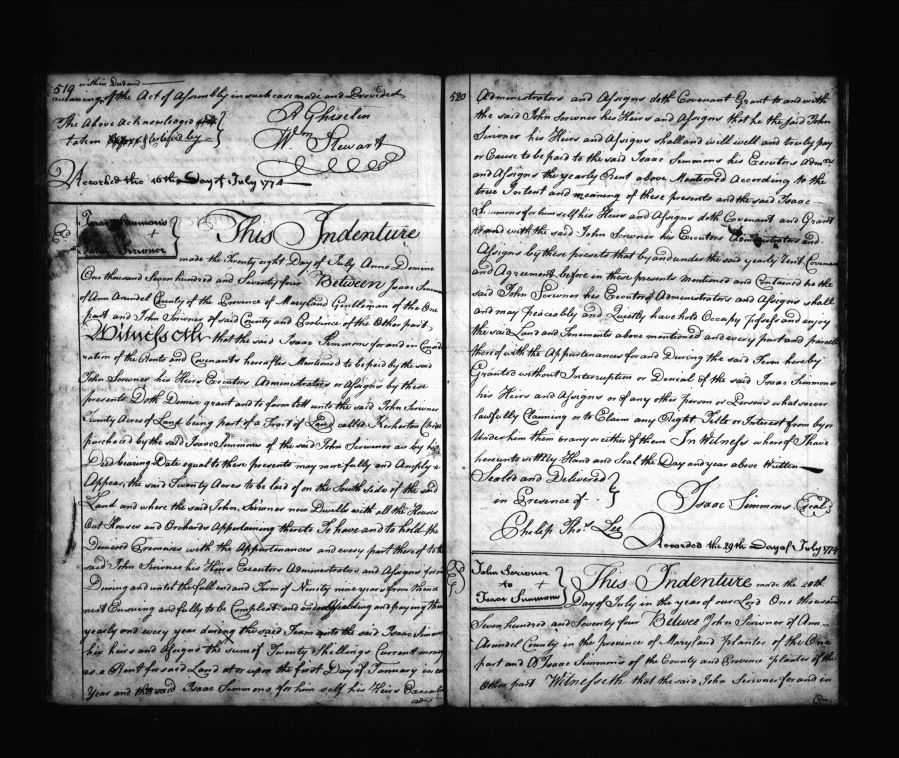 519 within Deed and
meaning of the Act of Assembly in such case made and Provided
The Above Acknowledged and
taken & Certified by
R Ghiselin
Wm Stewart
Recorded the 16th Day of July 1774
Isaac Simmons
to
John Scrivner
This Indenture
made the Twenty eight Day of July Anno Domini
One thousand Seven hundred and Seventy four Between Isaac Simmons
of Ann Arundel County of the Province of Maryland Gentleman of the One
part and John Scrivner of said County and Province of the Other part,
Witnesseth that the said Isaac Simmons for and in Conside
ration of the Rents and Covenants hereafter Mentioned to be paid by the said
John Scrivner his Heirs Executors Administrators or Assigns by these
presents Doth Demise grant and to farm lett unto the said John Scrivner
Twenty Acres of Land being part of a Tract of Land called
purchased by the said Isaac Simmons of the said John Scrivner as by his
Deed bearing Date equal to these presents may more fully and Amply
Appear, the said Twenty Acres to be laid of on the South side of the said
Land and where the said John Scrivner now Dwells with all the Houses
Out Houses and Orchards Appertaining thereto To have and to hold the
Demised Premises with the Appurtenances and every part thereof to the
said John Scrivner his Heirs Executors Administrators and Assigns for
During and until the full end and Term of Ninety nine years from thence
next Ensuing and fully to be Compleat and ended and paying then
yearly and every year during the said Term unto the said Isaac Simmons
his heirs and Assigns the sum of Twenty Shellings Current money
as a Rent for said Land at or upon the first Day of January in each
Year and the said Isaac Simmons for him self his Heirs Executors
Adm
520 Administrators and Assigns doth Covenant Grant to and with
the said John Scrivner his Heirs and Assigns that he the said John
Scrivner his Heirs and Assigns shall and will well and truly pay
or Cause to be paid to the said Isaac Simmons his Executors Admrs
and Assigns the yearly Rent above Mentioned According to the
true Intent and meaning of these presents and the said Isaac
Simmons for himself his Heirs and Assigns doth Covenant and Grant
to and with the said John Scrivner his Executors Administrators and
Assigns by these presents that by and under the said yearly Rent Covenant
and Agreement before in these presents Mentioned and Contained he the
said John Scrivner his Executors Administrators and Assigns shall
and may Peiceably and Quietly have hold Occupy Possess and enjoy
the said Land and Tenements above mentioned and every part and parcell
thereof with the Appurtenances for and During the said Term hereby
Granted without Interruption or Denial of the said Isaac Simmons
his Heirs and Assigns or of any other person or Persons whatsoever
lawfully Claiming or to Claim any Right Title or Interest from by or
Under him them or any or either of them In Witness whereof I have
hereunto set My Hand and Seal the Day and year above Written
Sealed and Delivered
in Presence of
Isaac Simmons Seal
Phelip Thos Lee
Recorded the 29th Day of July 1774
John Scrivner
to
Isaac Simmons
This Indenture made the 28th
Day of July in the year of our Lord One thousand
Seven hundred and Seventy four Betwee John Scrivner of Ann
Arundel County in the Province of Maryland Planter of the One
part and Isaac Simmons of the County and Province planter of the
Other part Witnesseth that the said John Scrivner for and in
Con